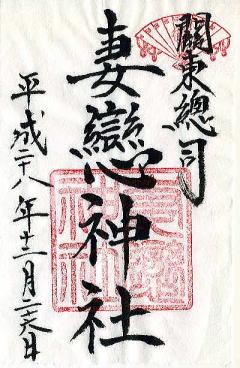 關東總司
妻戀神社
平成二十八年十二月二十六日